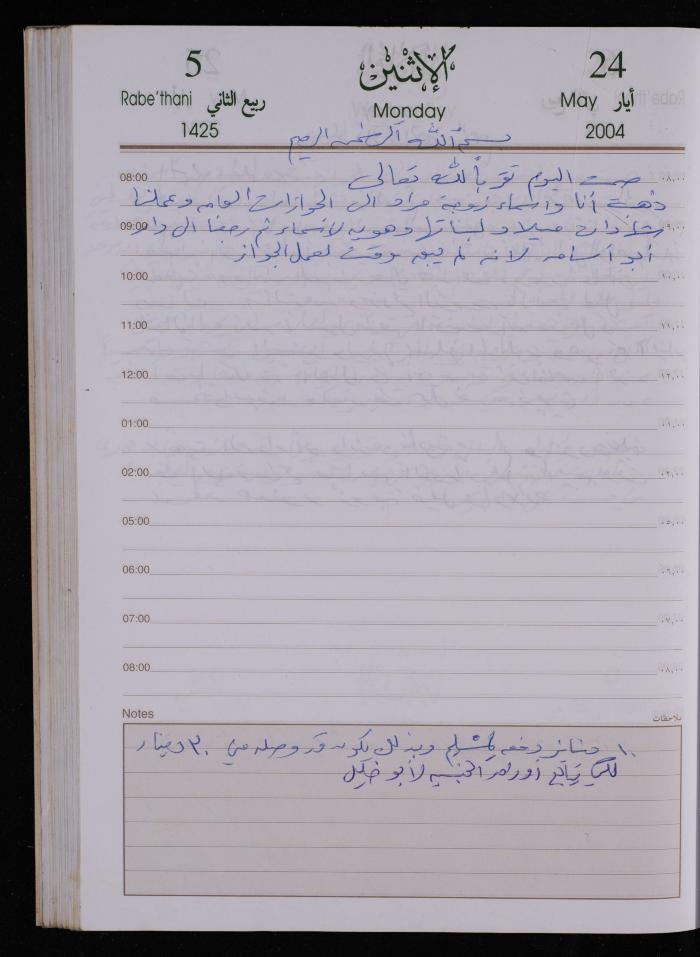 5 الإثنين 24
Rabe'thani ربيع الثاني Monday May أيار
1425 2004
بسم الله الرحمن الرحيم
08:00 صمت اليوم تقرباً لله تعالى ٠٨,٠٠
ذهبت أنا وأسماء زوجة مراد الى الجوازات العامه وعملنا
09:00 شهادات ميلاد لبناتها وهويه لأسماء ثم رجعنا الى دار ٠٩,٠٠
أبو أسامه لانه لم يبق وقت لعمل الجواز
10:00 ١٠,٠٠
11:00 ١١,٠٠
12:00 ١٢,٠٠
01:00 ٠١,٠٠
02:00 ٠٢,٠٠
05:00 ٠٥,٠٠
06:00 ٠٦,٠٠
07:00 ٠٧,٠٠
08:00 ٠٨,٠٠
Notes ملاحظات
١٠ دنانير دفعه وبذلك يكون قد وصله مني ٣٠ دينار
لكي يتابع أوراق الجنسيه لأبو خليل